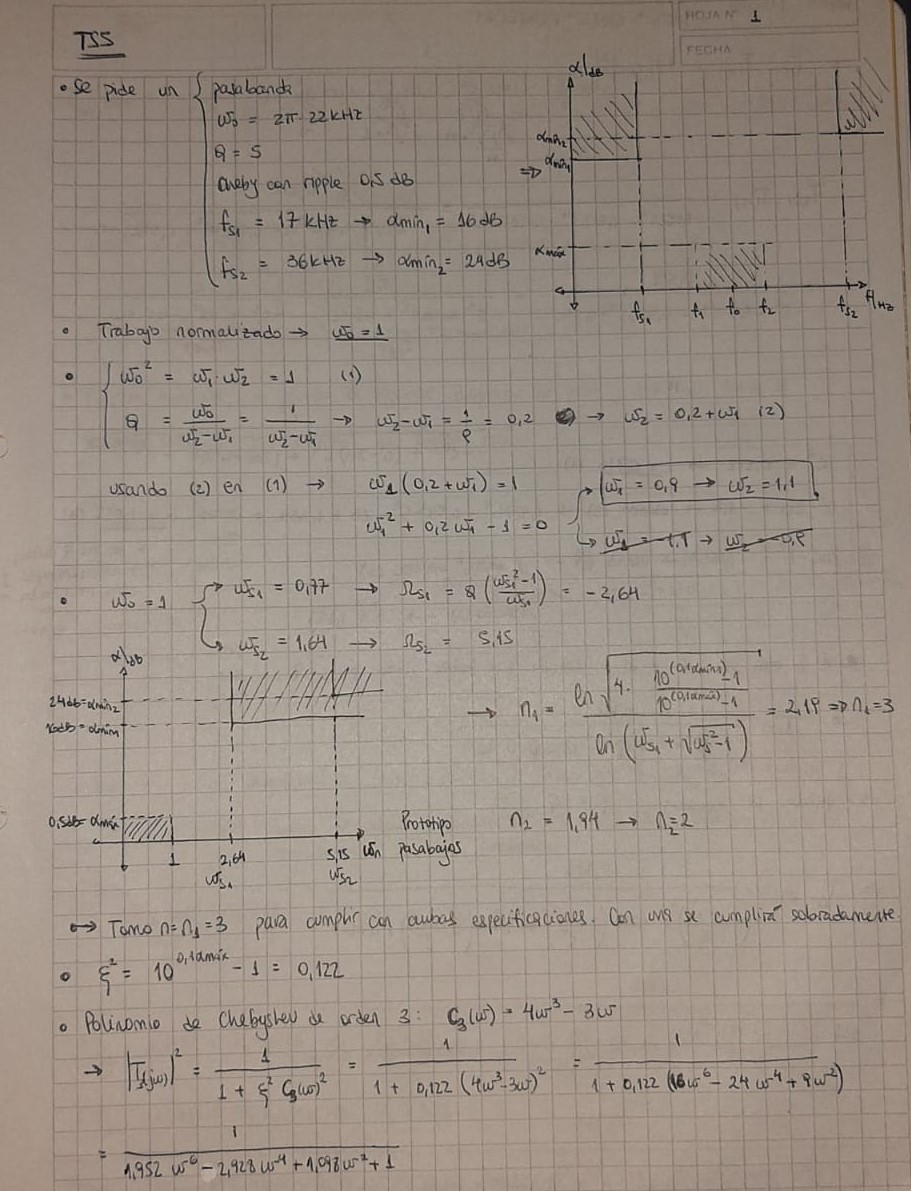 TS5
HOJA N° 1
FECHA
• Se pide un { pasabanda
ω₀ = 2π · 22 kHz
Q = 5
Cheby con ripple 0,5 dB
fs₁ = 17 kHz → αmín₁ = 16 dB
fs₂ = 36 kHz → αmín₂ = 24 dB
⇒
α/dB
αmín₂
αmín₁
αmáx
fs₁ f₁ f₀ f₂ fs₂ f/Hz
• Trabajo normalizado → ω₀ = 1
• { ω₀² = ω₁ · ω₂ = 1 (1)
Q = ω₀/(ω₂-ω₁) = 1/(ω₂-ω₁) → ω₂-ω₁ = 1/Q = 0,2 → ω₂ = 0,2 + ω₁ (2)
usando (2) en (1) → ω₁ (0,2 + ω₁) = 1
ω₁² + 0,2 ω₁ - 1 = 0
→ ω₁ = 0,9 → ω₂ = 1,1
→ ω₁ = -1,1 → ω₂ = -0,9
• ω₀ = 1
→ ωs₁ = 0,77 → Ωs₁ = Q ((ωs₁² - 1)/ωs₁) = -2,64
→ ωs₂ = 1,64 → Ωs₂ = 5,15
α/dB
24db = αmín₂
16db = αmín₁
0,5db = αmáx
1 2,64 5,15 ωn
ωs₁ ωs₂
Prototipo
pasabajos
→ n₁ = ln √(4 · (10^(0,1αmín₁) - 1)/(10^(0,1αmáx) - 1)) / ln (ωs₁ + √(ωs² - 1)) = 2,19 ⇒ n₁ = 3
n₂ = 1,94 → n₂ = 2
↦ Tomo n = n₁ = 3 para cumplir con ambas especificaciones. Con una se cumplirá sobradamente.
• ξ² = 10^(0,1αmáx) - 1 = 0,122
• Polinomio de Chebyshev de orden 3: C₃(ω) = 4ω³ - 3ω
→ |T(jω)|² = 1/(1 + ξ² C₃(ω)²) = 1/(1 + 0,122 (4ω³-3ω)²) = 1/(1 + 0,122 (16ω⁶ - 24ω⁴ + 9ω²))
= 1/(1,952 ω⁶ - 2,928 ω⁴ + 1,098 ω² + 1)